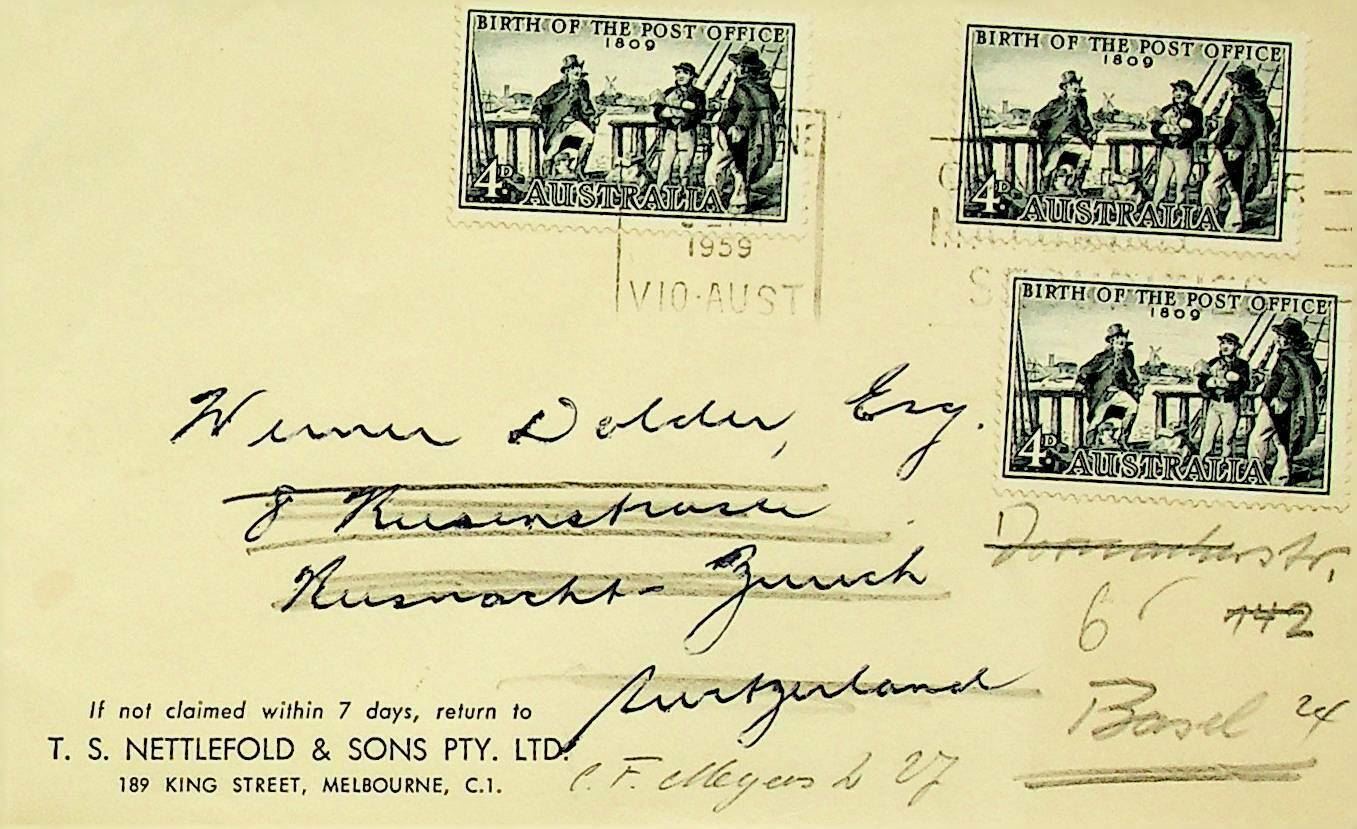 BIRTH OF THE POST OFFICE
1809
4D. AUSTRALIA
BIRTH OF THE POST OFFICE
1809
4D. AUSTRALIA
1959
VIC·AUST
BIRTH OF THE POST OFFICE
1809
4D. AUSTRALIA
Werner Dolder, Esq.
8
Kusnacht - Zurich
Switzerland
6 142
Basel 24
If not claimed within 7 days, return to
T. S. NETTLEFOLD & SONS PTY. LTD.
189 KING STREET, MELBOURNE, C.1.
C. F. Meyer